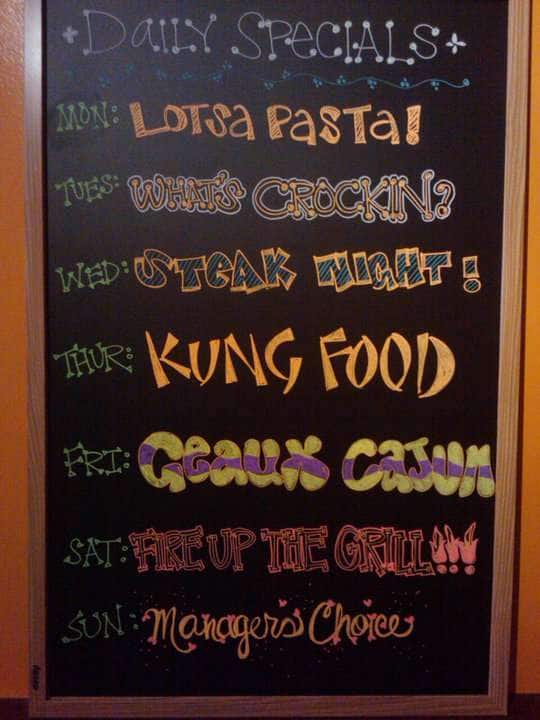 Daily Specials
MON: Lotsa Pasta!
TUES: WHAT'S CROCKIN?
WED: STEAK NIGHT!
THUR: KUNG FOOD
FRI: Geaux Cajun
SAT: FIRE UP THE GRILL!!!
SUN: Manager's Choice